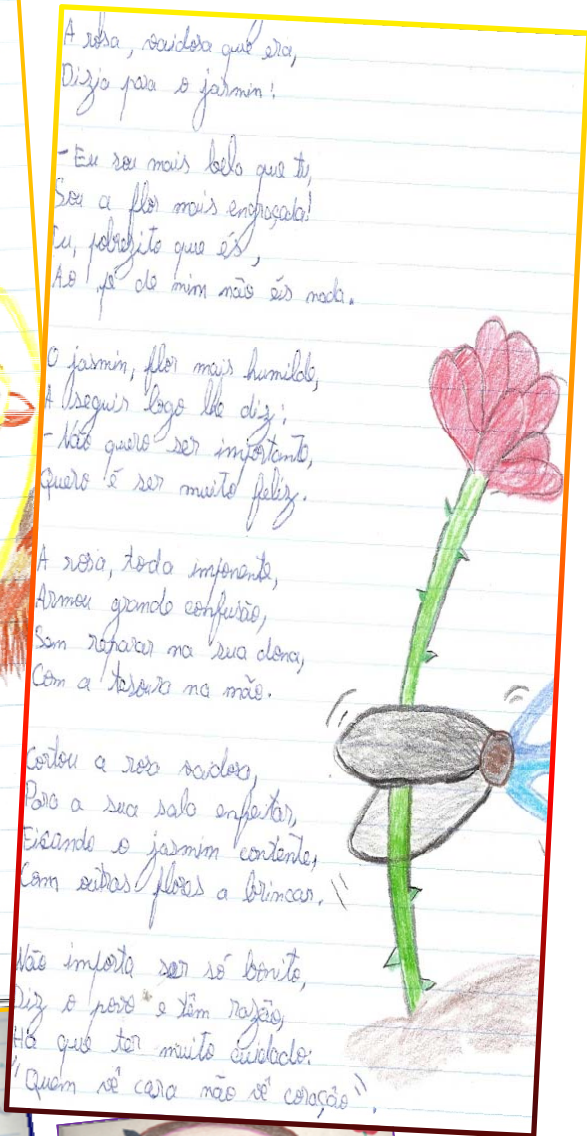 A rosa, vaidosa que era,
Dizia para o jasmin:
- Eu sou mais bela que tu,
Sou a flor mais engraçada!
Tu, pobrezito que és,
Ao pé de mim não és nada.
O jasmin, flor mais humilde,
A seguir logo lhe diz:
- Não quero ser importante,
Quero é ser muito feliz.
A rosa, toda imponente,
Armou grande confusão,
Sem reparar na sua dona,
Com a tesoura na mão.
Cortou a rosa vaidosa,
Para a sua sala enfeitar,
Ficando o jasmim contente,
Com outras flores a brincar.
Não importa ser só bonito,
Diz o povo e têm razão,
Há que ter muito cuidado:
"Quem vê cara não vê coração".